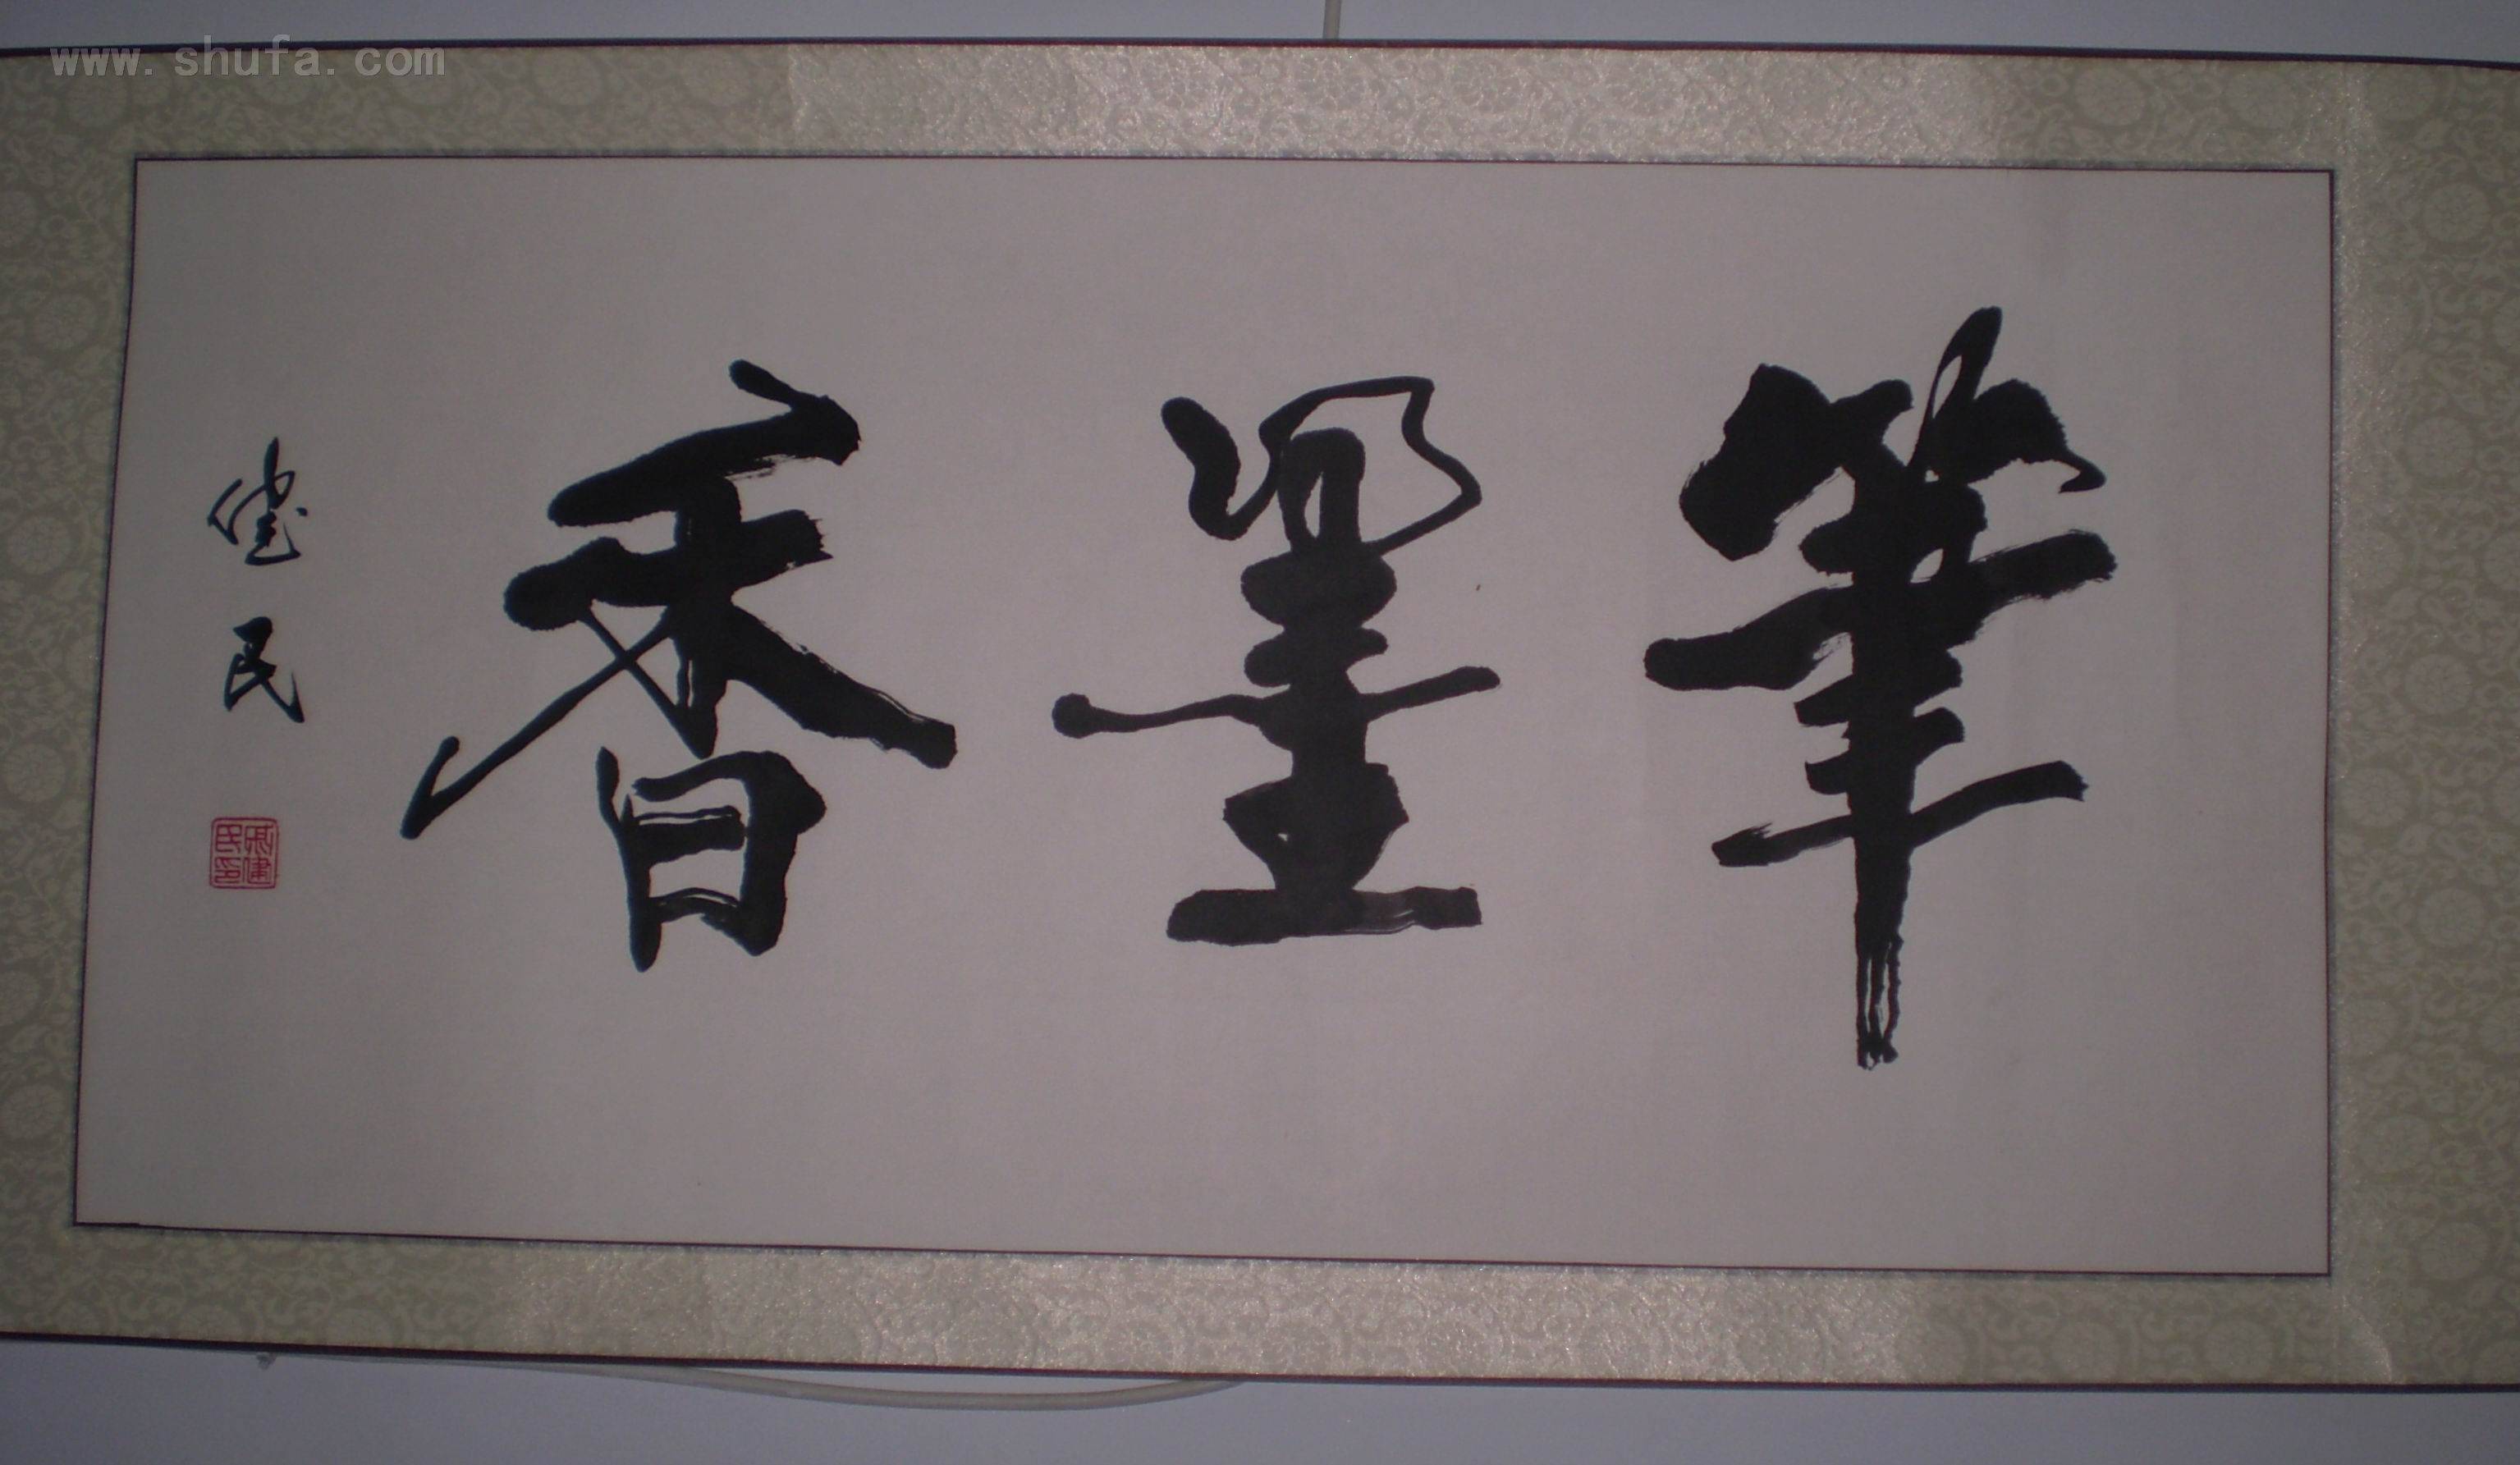 www.shufa.com
筆墨香
健民